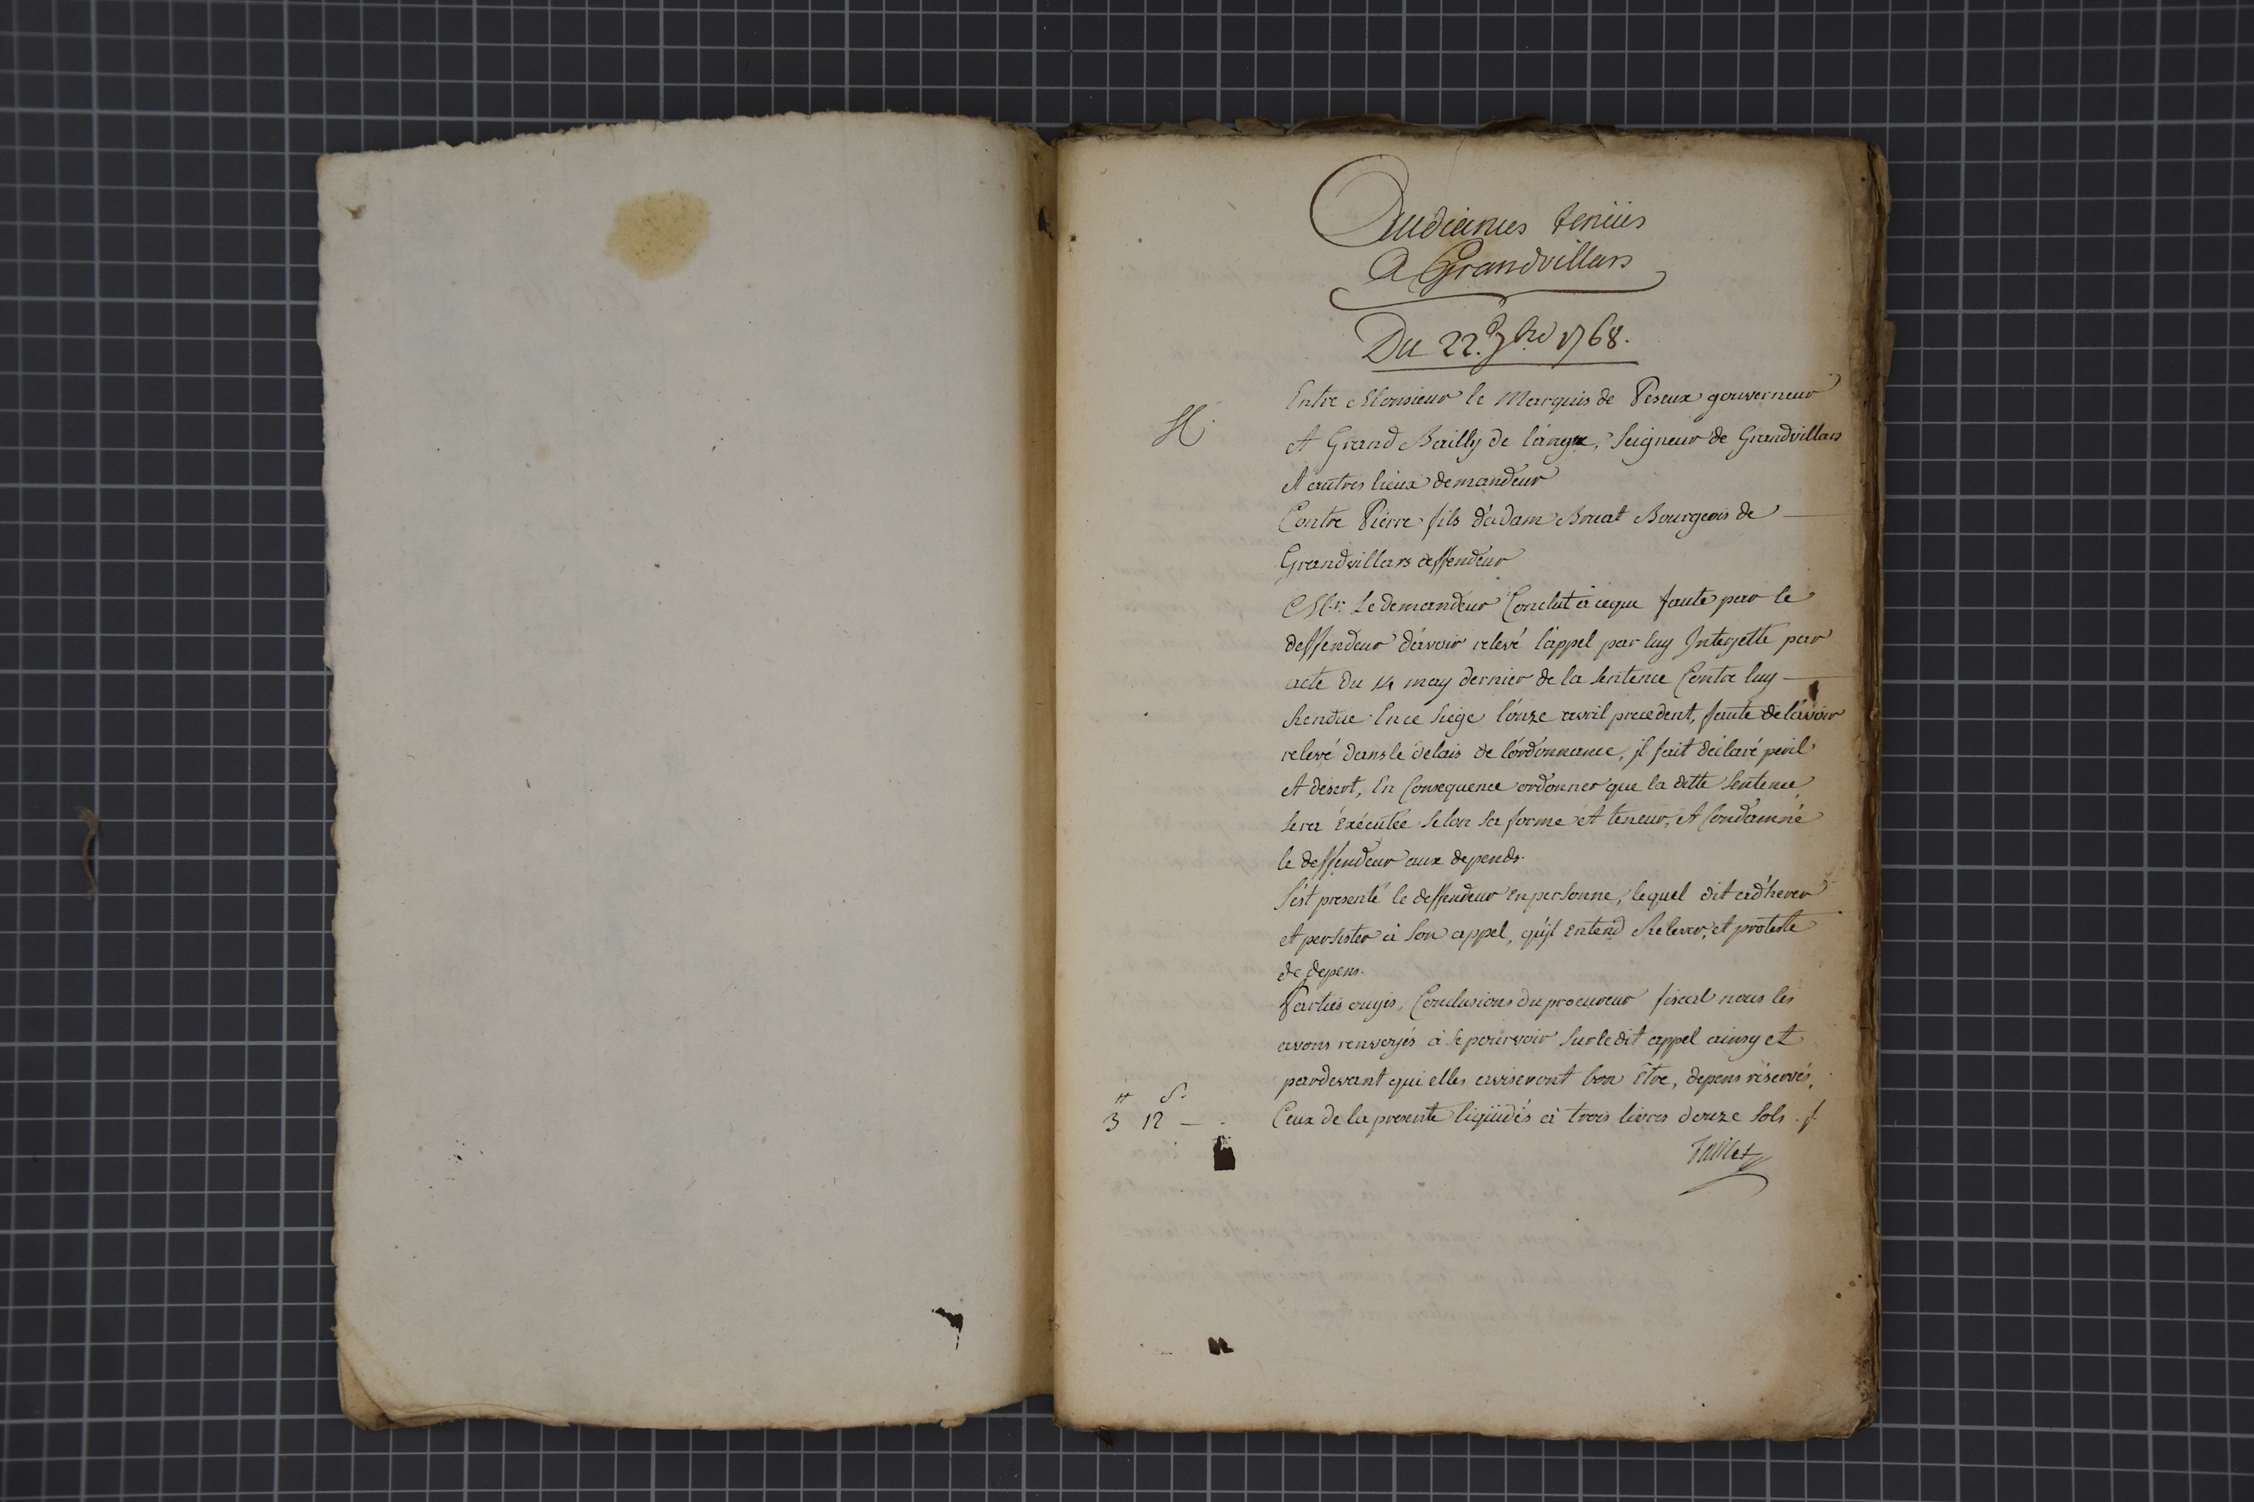 Audiances tenüés
A Grandvillars
Du 22.e 7bre 1768.
Entre Monsieur le Marquis de Peseux gouverneur
H.
et Grand Bailly de langre, Seigneur de Grandvillars
et autres lieux demandeur
Contre Pierre fils d'adam Bruat Bourgeois de
Grandvillars deffendeur
Mr. Le demandeur Conclut à ceque faute par le
deffendeur d'avoir relevé l'appel par luy Interjetté par
acte du 14 may dernier de la sentence Contre luy
Rendue En ce siege l'onze avril precedent, faute de l'avoir
relevé dans le delais de l'ordonnance, il soit déclaré peril
et désert, En Consequence ordonner que la ditte sentence
sera éxécutée selon sa forme et teneur, et Condamné
le deffendeur aux depends.
S'ést presenté le deffendeur en personne, lequel dit adhérer
et persister à son appel, qu'jl entend Relever, et proteste
de depens.
Parties ouyes, Conclusions du procureur fiscal nous les
avons renvoyés à se pourvoir sur le dit appel ainsy et
pardevant qui elles aviseront bon Etre, depens réservés,
₶ s.
3 12 — Ceux de la presente liquidés à trois livres douze sols ./.
Taillet